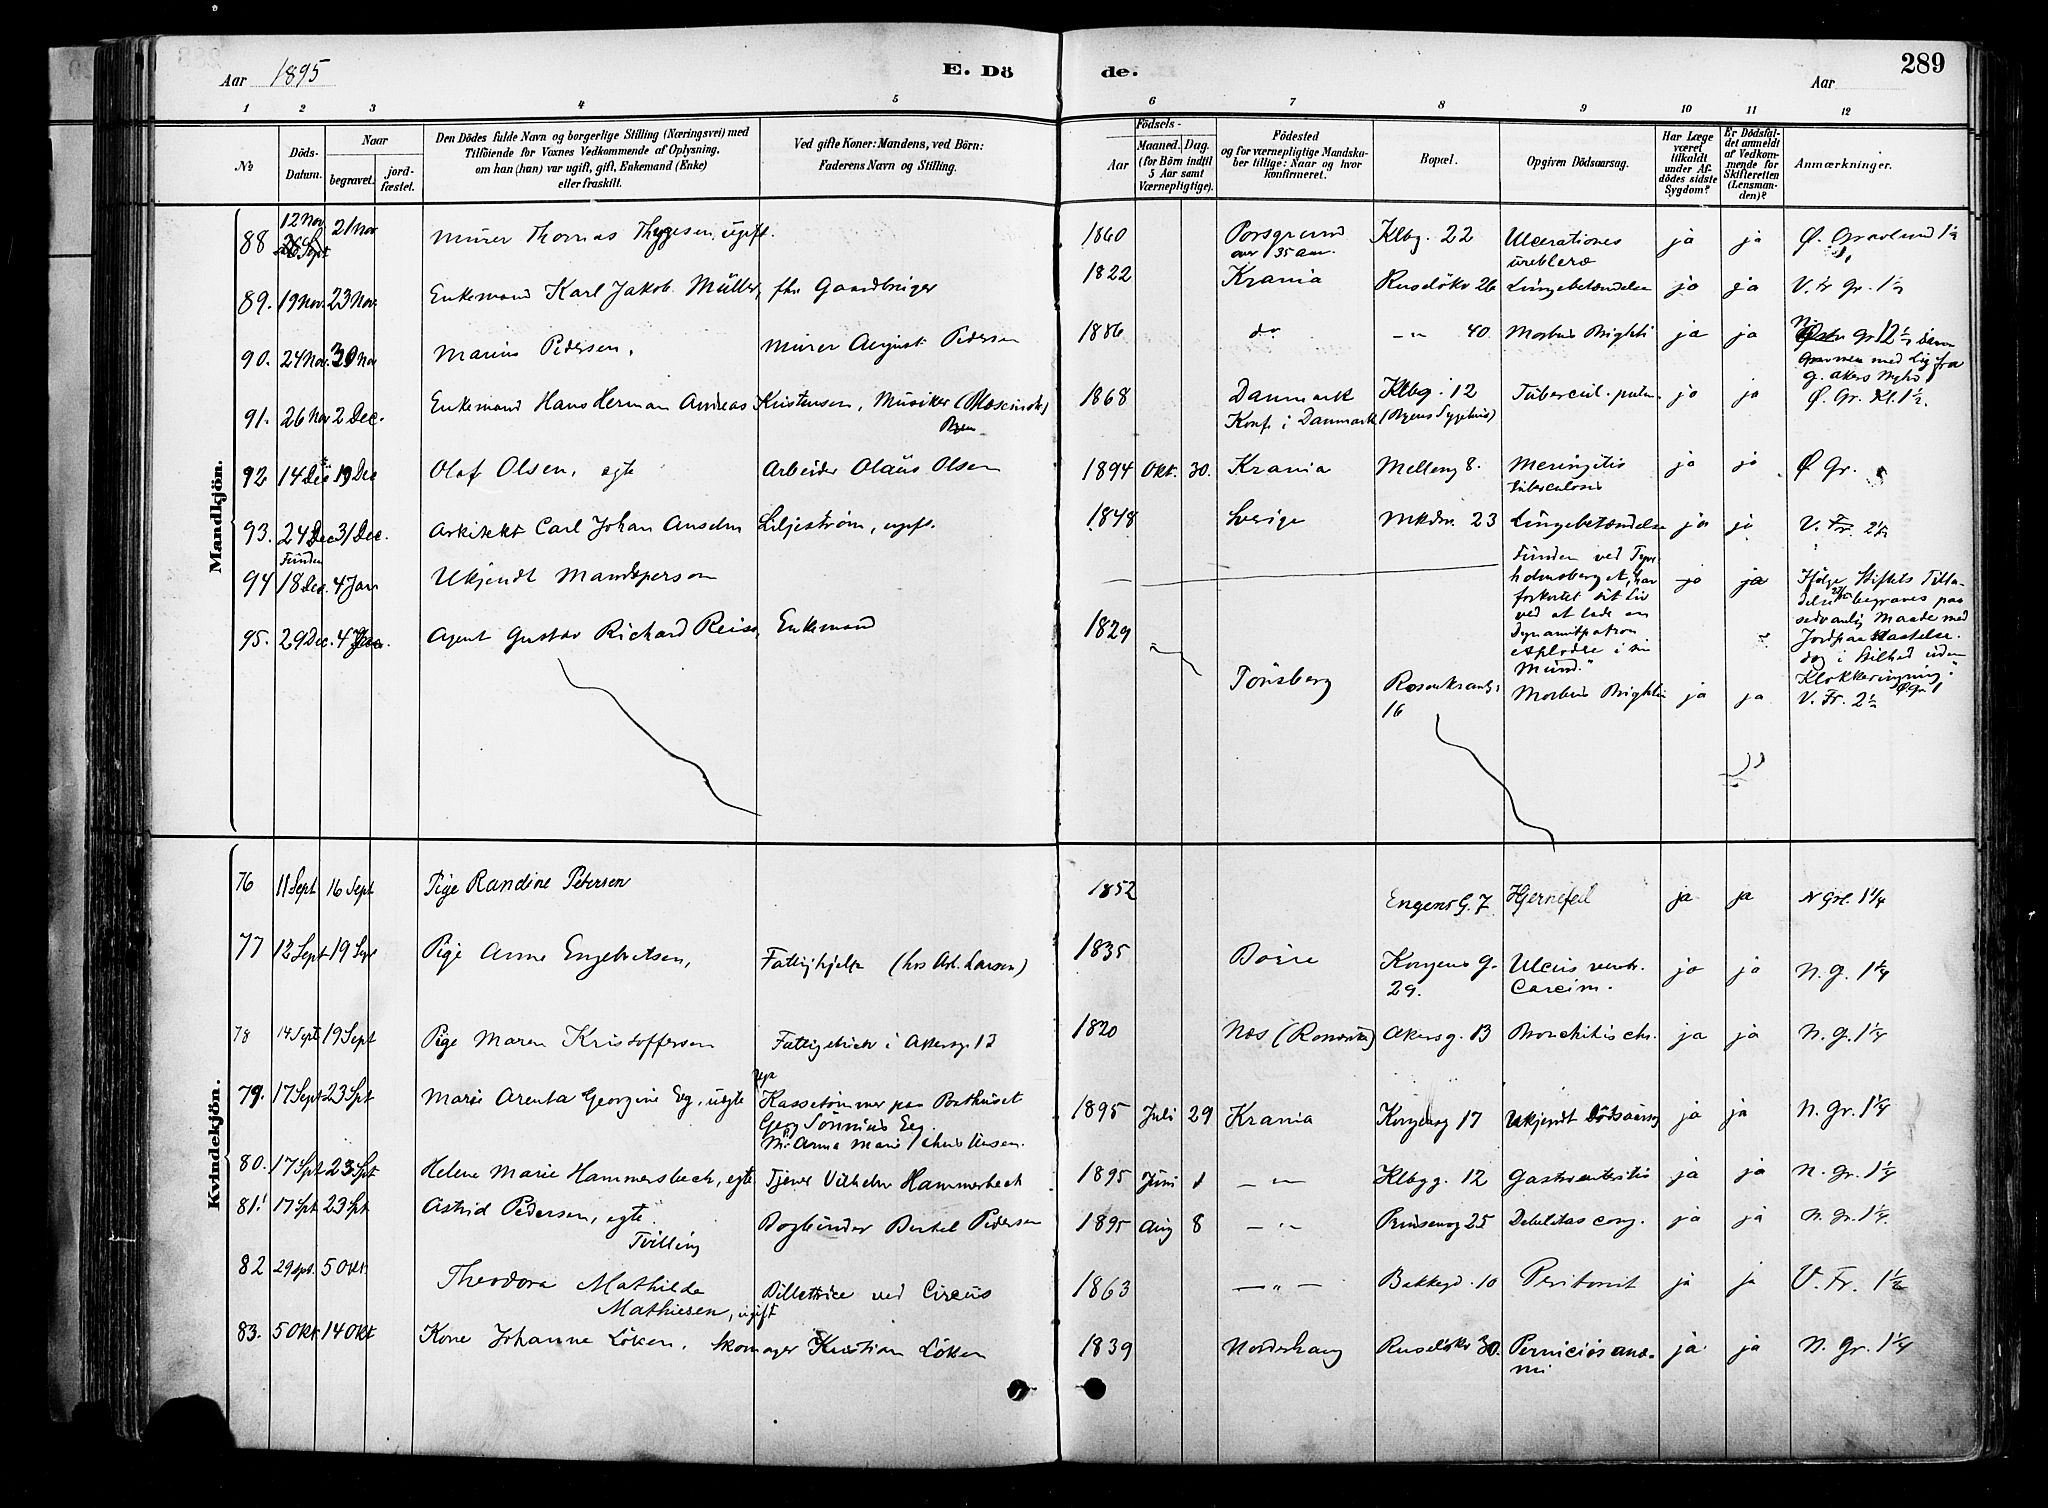 Aar 1895
E. Dö
de.
Aar
289
1 2 3 4 5 6 7 8 9 10 11 12
No
Döds-
Datum.
Naar
begravet.
jord-
fæstet.
Den Dödes fulde Navn og borgerlige Stilling (Næringsvei) med
Tilföiende for Voxnes Vedkommende af Oplysning,
om han (hun) var ugift, gift, Enkemand (Enke)
eller fraskilt.
Ved gifte Koner: Mandens, ved Börn:
Faderens Navn og Stilling.
Födsels-
Aar
Maaned. Dag.
(for Börn indtil
5 Aar samt
Værnepligtige).
Födested
og for værnepligtige Mandska-
ber tillige: Naar og hvor
konfirmeret.
Bopæl.
Opgiven Dödsaarsag.
Har Læge
været
tilkaldt
under Af-
dödes sidste
Sygdom?
Er Dödsfal-
det anmeldt
af Vedkom-
mende for
Skifteretten
(Lensman-
den)?
Anmærkninger.
Mandkjön.
88 12 Nov 21 Nov Murer Thomas Thygesen, ugift. 1860 Porsgrund Klbg. 22 Ulcerationes ja ja Ø. Gravlund 1½
over 35 aar.
89. 19 Nov. 23 Nov Enkemand Karl Jakob Müller, fhv Gaardbruger 1822 Krania Ruselökv 26 Lungebetændelse ja ja V. Fr Gr. 1½
90. 24 Nov. 30 Nov Marius Pedersen, Murer August Pedersen 1886 do -"- 40. Morbus Brighti ja ja
91. 26 Nov 2 Dec. Enkemand Hans Herman Andreas Kristensen, Musiker 1868 Danmark Klbg. 12 Tubercul. pulm. ja ja Ø. Gr. Kl. 1½.
Konf. i Danmark (Byens Sygehus)
92 14 Dec 19 Dec Olaf Olsen, egte Arbeider Olaüs Olsen 1894 Okt. 30. Krania Melleng 8. Meningitis ja ja Ø Gr.
tuberculosis
93. 24 Dec 31 Dec. Arkitekt Carl Johan Anselm Liljeström, ugift. 1848 Sverige Mkdm. 23 Lungebetændelse ja ja V. Fr. 2½
Funden
94 18 Dec. 4 Jan Ukjendt Mandsperson
Funden ved Tyve-
holmsberget, har
forkortet sit Liv
ved at lade en
Dynamitpatron
explodere i sin
Mund."
ja ja
Ifölge Stiftets Tilla-
delse begraves paa
sedvanlig Maade med
Jordpaakastelse.
dog i Stilhed uden
Klokkeringning."
95. 29 Dec. 4 Jan. Agent Gustav Richard Reiss, Enkemand 1829 Tönsberg Rosenkrantzg 16 Morbus Brighti ja ja V. Fr. 2½
Kvindekjön.
76 11 Sept 16 Sept Pige Randine Petersen 1852 Engens G. 7 Hjernefeil ja ja N Grl. 1¼
77 12 Sept 19 Sept Pige Anne Engebretsen, Fattighjelp (hos Arb. Larsen) 1835 Borre Kongens G. 29. Ulcus ventr. Carcin. ja ja N. G. 1¼
78 14 Sept 19 Sept Pige Maren Kristoffersen Fattiglem i Akersg 13 1820 Næs (Romerike) Akersg. 13 Bronchitis chr. ja ja N. G. 1¼
79. 17 Sept 23 Sept Marie Arenta Georgine Eeg, uegte Kassetömmer paa Posthuset
Georg Sönnius Eeg.
M: Anna Marie Christensen.
1895 Juli 29 Krania Kongensg 17 Ukjendt Dödsaarsag ja ja N. Gr. 1¼
80. 17 Spt 23 Spt Helene Marie Hammersbech, egte Tjener Vilhelm Hammerbech 1895 Juni 1 -"- Klbgg. 12 Gastroenteritis ja ja N. Gr. 1¼
81. 17 Spt 23 Spt Astrid Pedersen, egte. Bogbinder Bertel Pedersen 1895 Aug 8 -"- Prinsensg 25 Debilitas cong. ja ja N. Gr. 1¼.
Tvilling
82 29 Spt. 5 Okt Theodora Mathilde Billettrice ved Circus 1863 -"- Bakkegd. 10 Peritonit ja ja V. Fr. 1½
Mathiesen, ugift
83. 5 Okt. 14 Okt Kone Johanne Löken. Skomager Kristian Löken 1839 Norderhaug Ruselökv 30. Perniciös anæ- ja ja N. Gr. 1¼
mi